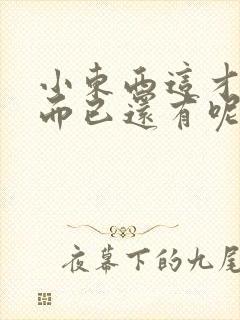 小東西這才
而已還有呢
夜幕下的九尾